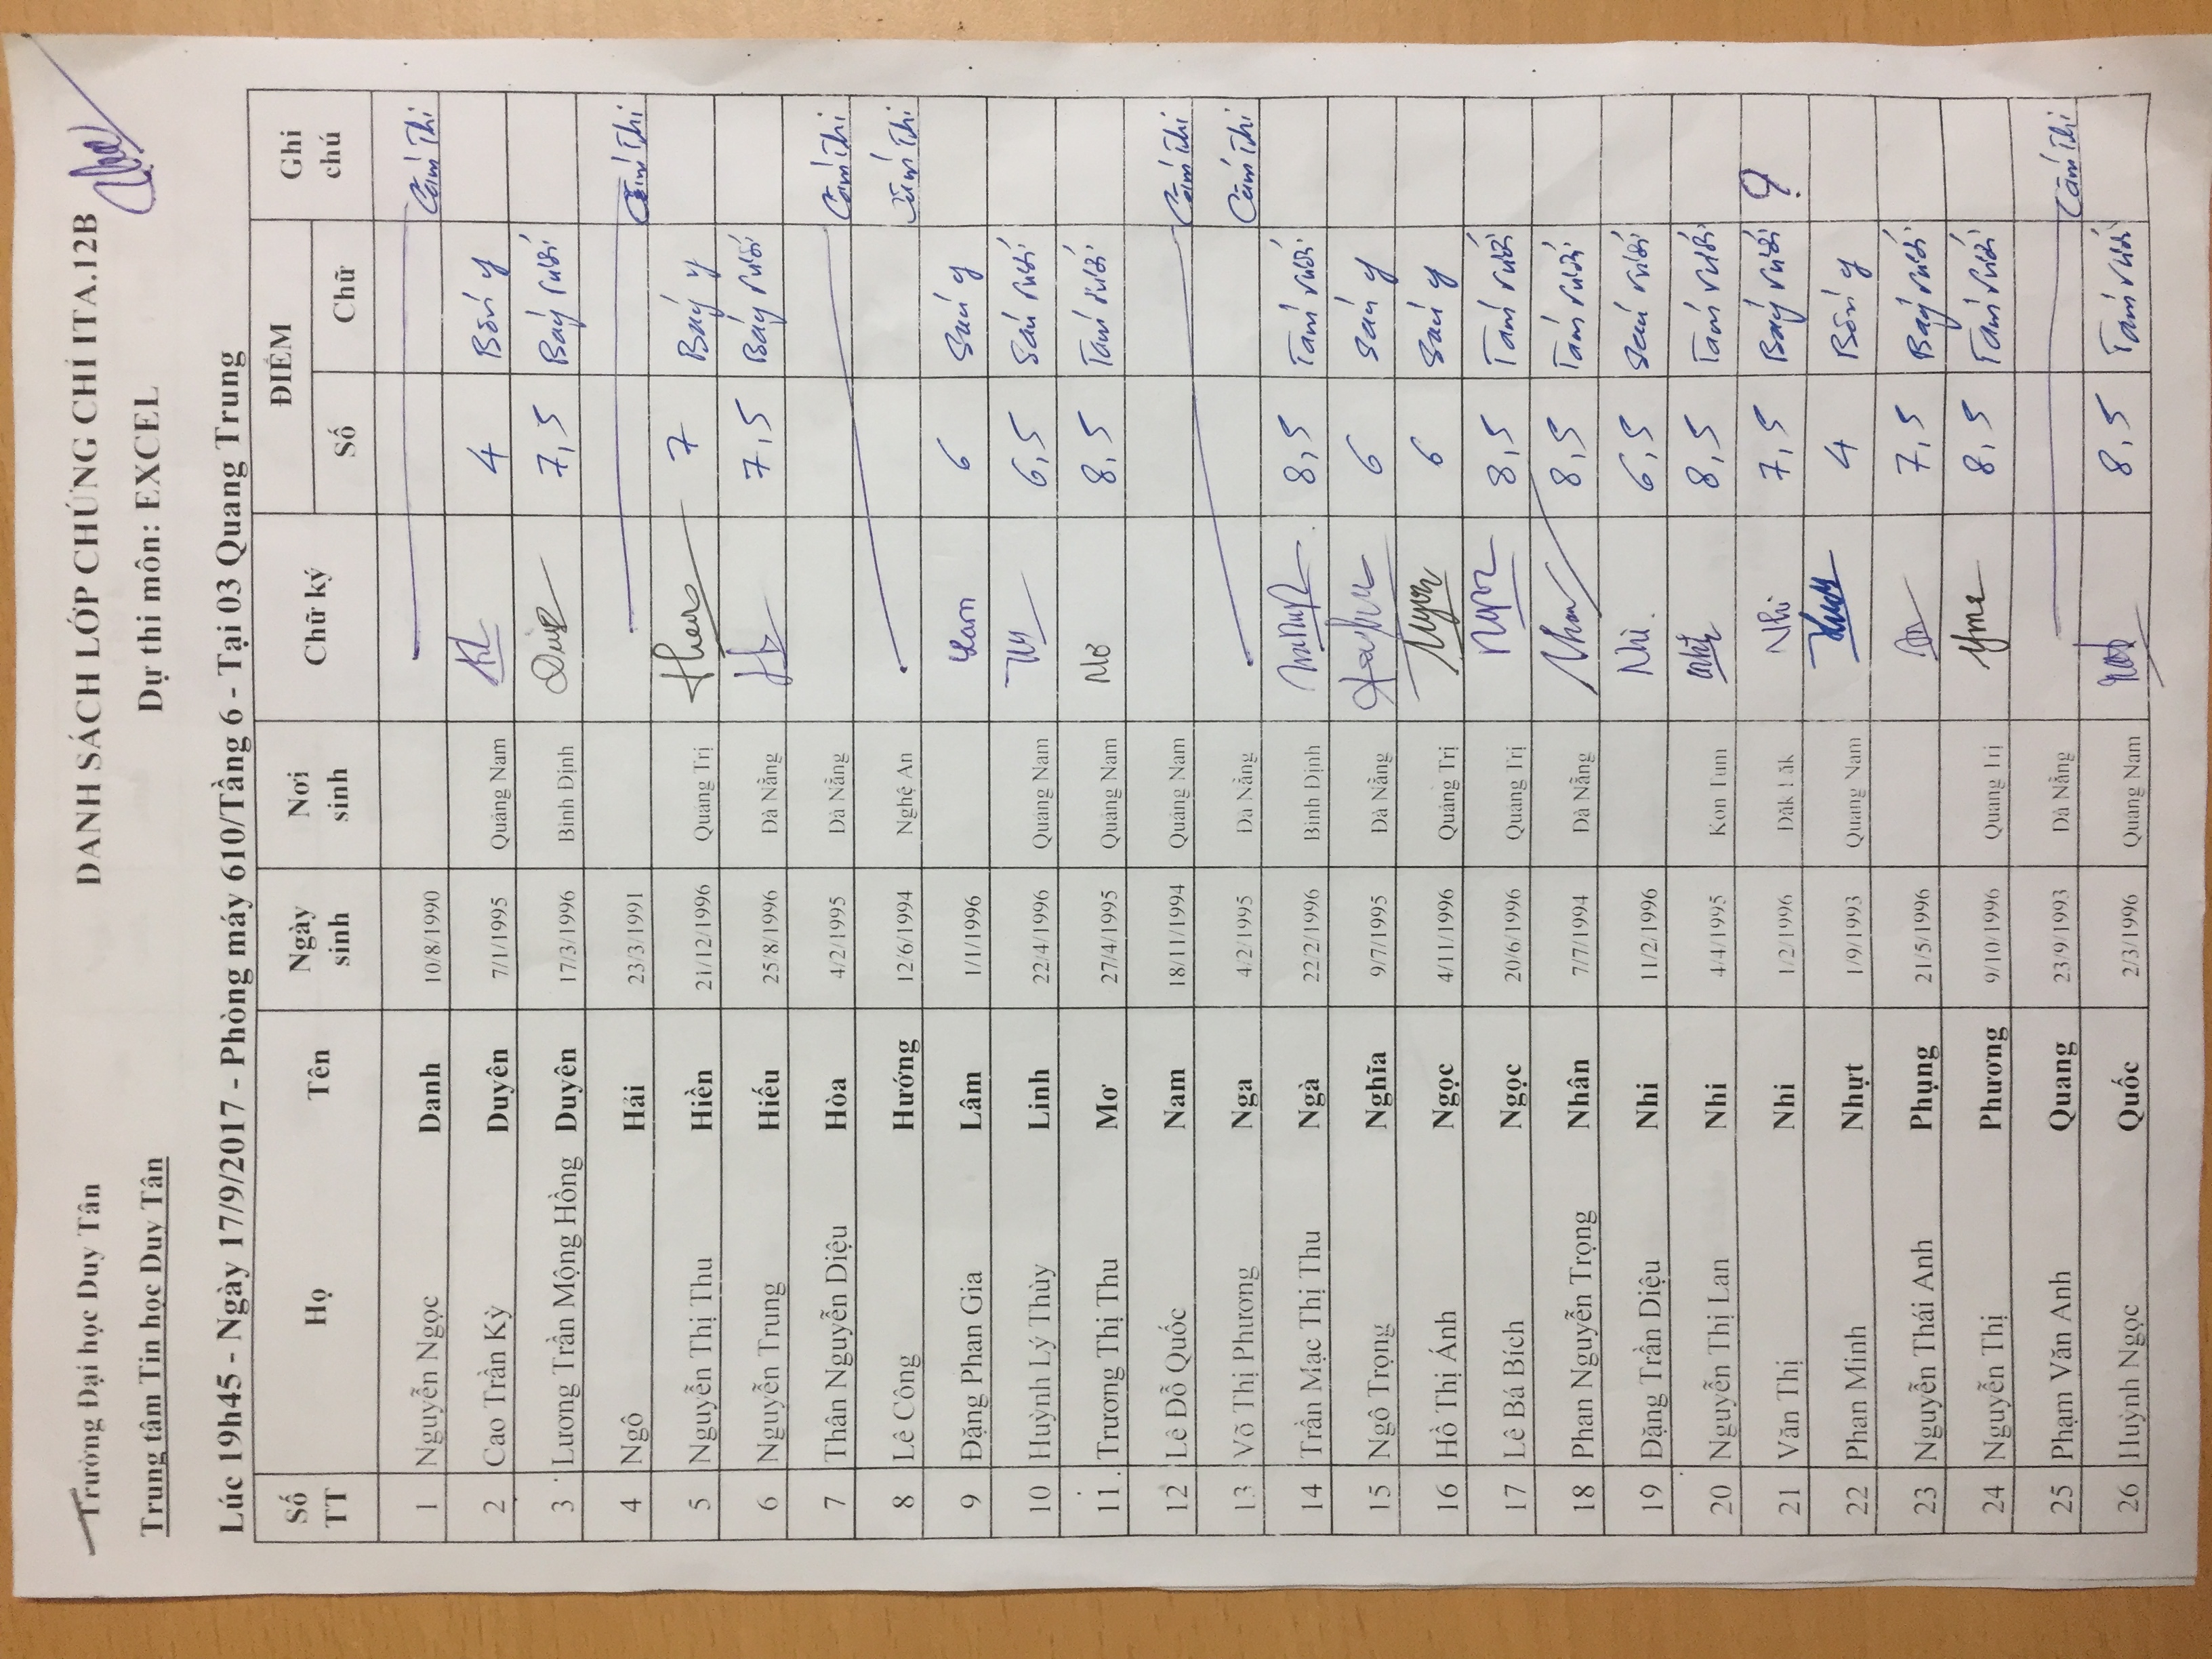 Trường Đại học Duy Tân DANH SÁCH LỚP CHỨNG CHỈ ITA.12B
Trung tâm Tin học Duy Tân Dự thi môn: EXCEL
Lúc 19h45 - Ngày 17/9/2017 - Phòng máy 610/Tầng 6 - Tại 03 Quang Trung
Số TT Họ Tên Ngày sinh Nơi sinh Chữ ký ĐIỂM Ghi chú
Số Chữ
1 Nguyễn Ngọc Danh 10/8/1990 Cấm thi
2 Cao Trần Kỳ Duyên 7/1/1995 Quảng Nam 4 Bốn y
3 Lương Trần Mộng Hồng Duyên 17/3/1996 Bình Định 7,5 Bảy rưỡi
4 Ngô Hải 23/3/1991 Cấm thi
5 Nguyễn Thị Thu Hiền 21/12/1996 Quảng Trị 7 Bảy y
6 Nguyễn Trung Hiếu 25/8/1996 Đà Nẵng 7,5 Bảy rưỡi
7 Thân Nguyễn Diệu Hòa 4/2/1995 Đà Nẵng Cấm thi
8 Lê Công Hướng 12/6/1994 Nghệ An Cấm thi
9 Đặng Phan Gia Lâm 1/1/1996 Lam 6 Sáu y
10 Huỳnh Lý Thùy Linh 22/4/1996 Quảng Nam 6,5 Sáu rưỡi
11 Trương Thị Thu Mơ 27/4/1995 Quảng Nam Mơ 8,5 Tám rưỡi
12 Lê Đỗ Quốc Nam 18/11/1994 Quảng Nam Cấm thi
13 Võ Thị Phương Nga 4/2/1995 Đà Nẵng Cấm thi
14 Trần Mạc Thị Thu Ngà 22/2/1996 Bình Định 8,5 Tám rưỡi
15 Ngô Trọng Nghĩa 9/7/1995 Đà Nẵng 6 Sáu y
16 Hồ Thị Ánh Ngọc 4/11/1996 Quảng Trị 6 Sáu y
17 Lê Bá Bích Ngọc 20/6/1996 Quảng Trị 8,5 Tám rưỡi
18 Phan Nguyễn Trọng Nhân 7/7/1994 Đà Nẵng 8,5 Tám rưỡi
19 Đặng Trần Diệu Nhi 11/2/1996 Nhi 6,5 Sáu rưỡi
20 Nguyễn Thị Lan Nhi 4/4/1995 Kon Tum 8,5 Tám rưỡi
21 Văn Thị Nhi 1/2/1996 Đăk Lăk Nhi 7,5 Bảy rưỡi ?
22 Phan Minh Nhựt 1/9/1993 Quảng Nam 4 Bốn y
23 Nguyễn Thái Anh Phụng 21/5/1996 7,5 Bảy rưỡi
24 Nguyễn Thị Phương 9/10/1996 Quảng Trị 8,5 Tám rưỡi
25 Phạm Văn Anh Quang 23/9/1993 Đà Nẵng Cấm thi
26 Huỳnh Ngọc Quốc 2/3/1996 Quảng Nam 8,5 Tám rưỡi